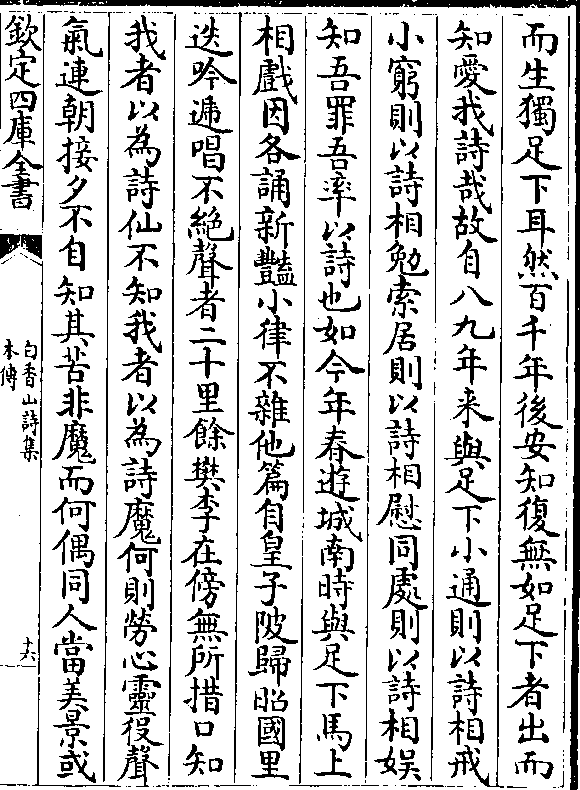 而生獨足下耳然百千年後安知復無如足下者出而
知愛我詩哉故自八九年来與足下小通則以詩相戒
小窮則以詩相勉索居則以詩相慰同處則以詩相娱
知吾罪吾率以詩也如今年春遊城南時與足下馬上
相戲因各誦新豔小律不雜他篇自皇子陂歸昭國里
迭吟遞唱不絶聲者二十里餘樊李在傍無所措口知
我者以為詩仙不知我者以為詩魔何則勞心靈役聲
氣連朝接夕不自知其苦非魔而何偶同人當美景或
欽定四庫全書
白香山詩集
本傳
十六